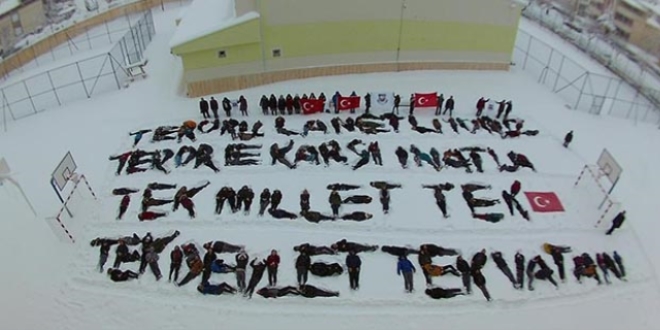 TERÖRÜ LANETLİYORUZ
TERÖRE KARŞI
TEK MİLLET TEK
TEK DEVLET TEK VATAN